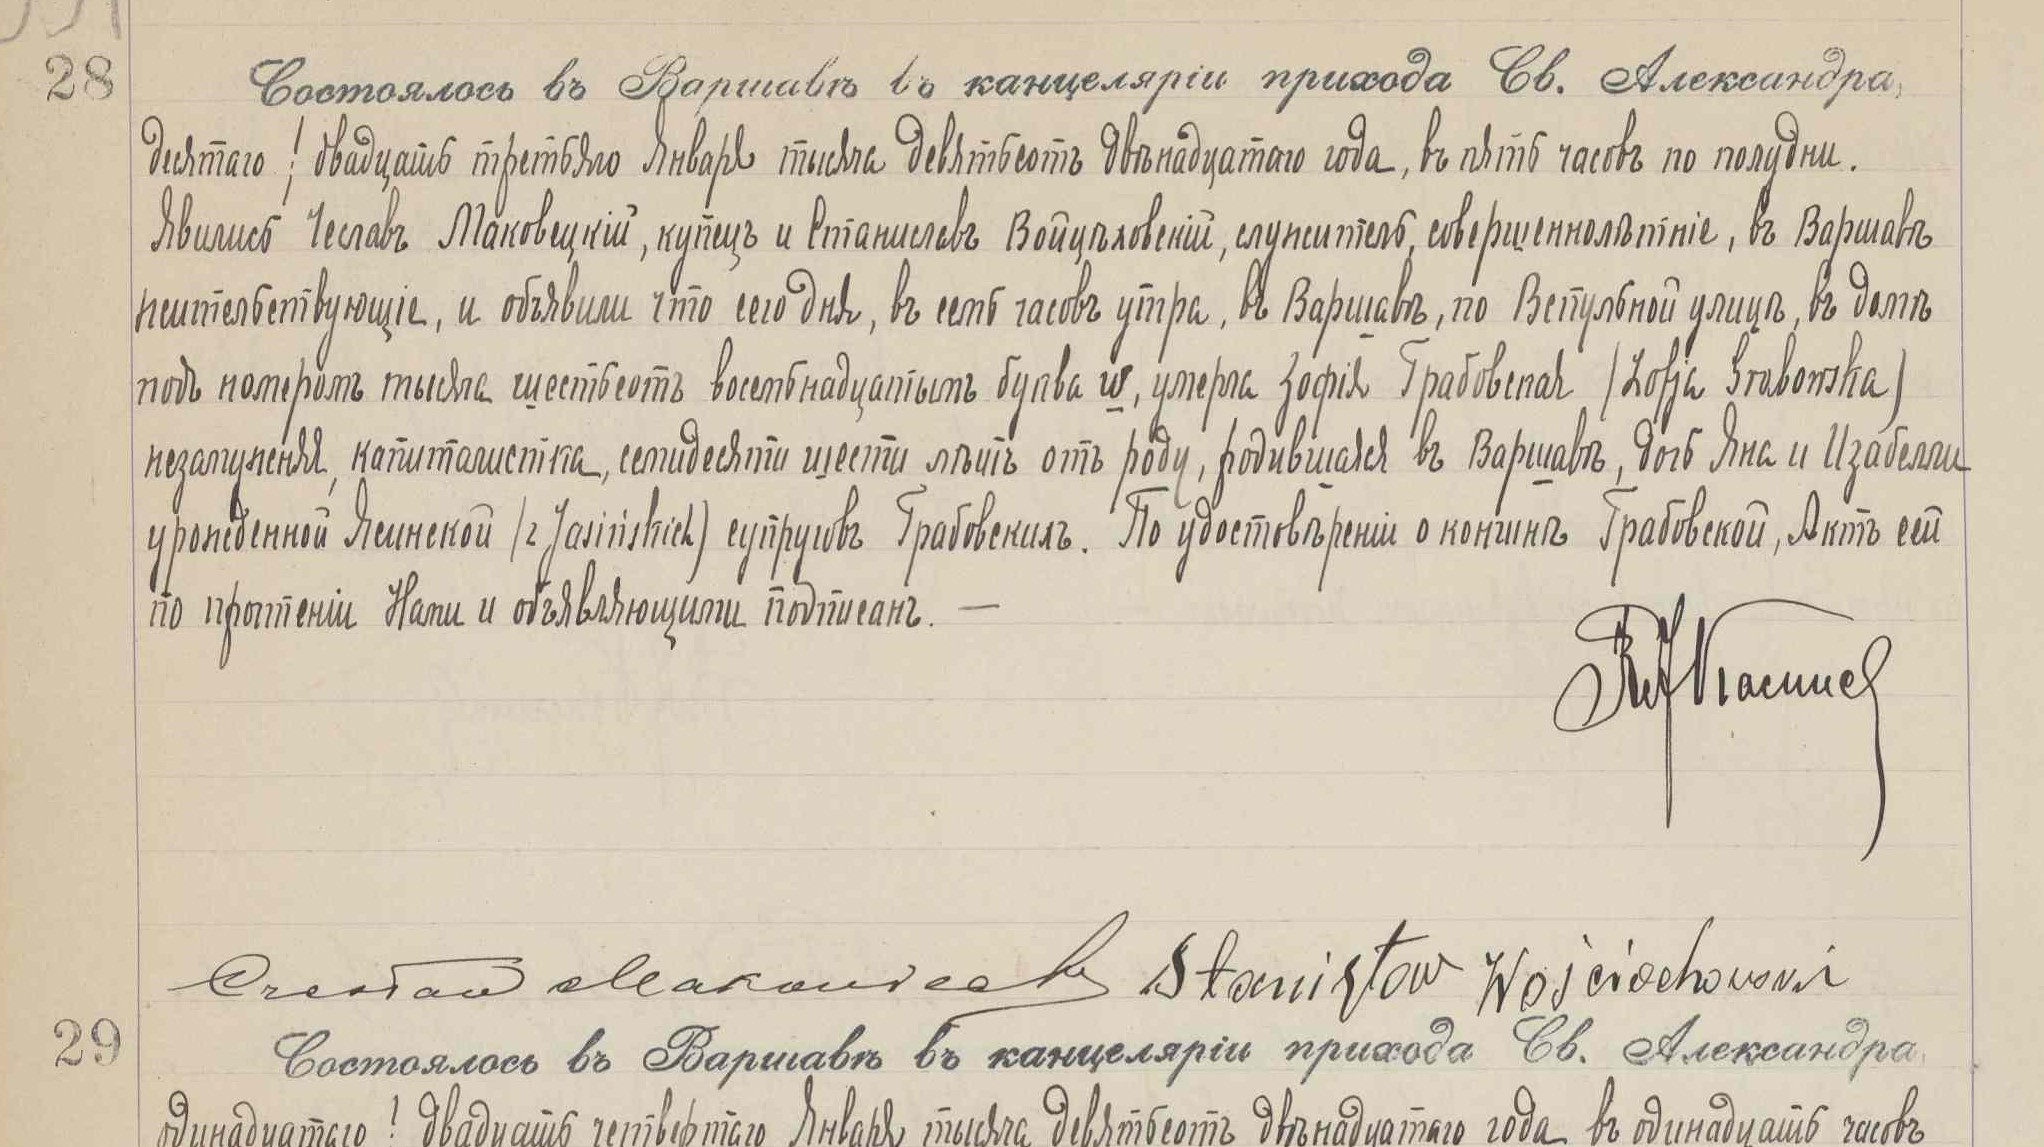 28
Состоялось въ Варшавѣ въ канцеляріи прихода Св. Александра,
десятаго / двадцать третьяго Января тысяча девятьсотъ двѣнадцатаго года, въ пять часовъ по полудни.
Явились Чеславъ Маковецкій, купецъ и Станиславъ Войцѣховскій, служитель, совершеннолѣтніе, въ Варшавѣ
жительствующіе, и объявили что сего дня, въ семь часовъ утра, въ Варшавѣ, по Вспульной улицѣ, въ домѣ
подъ номеромъ тысяча шестьсотъ восемьнадцатымъ буква w, умерла Зофія Грабовская (Zofja Grabowska)
незамужняя, капиталистка, семидесяти шести лѣтъ отъ роду, родившаяся въ Варшавѣ, дочь Яна и Изабелли
урожденной Ясинской (z Jasińskich) супруговъ Грабовскихъ. По удостовѣреніи о кончинѣ Грабовской, Актъ сей
по прочтеніи Нами и объявляющими подписанъ. —
Czesław Makowiecki Stanisław Wojciechowski
29
Состоялось въ Варшавѣ въ канцеляріи прихода Св. Александра,
одинадцатаго / двадцать четвертаго Января тысяча девятьсотъ двѣнадцатаго года въ одинадцать часовъ